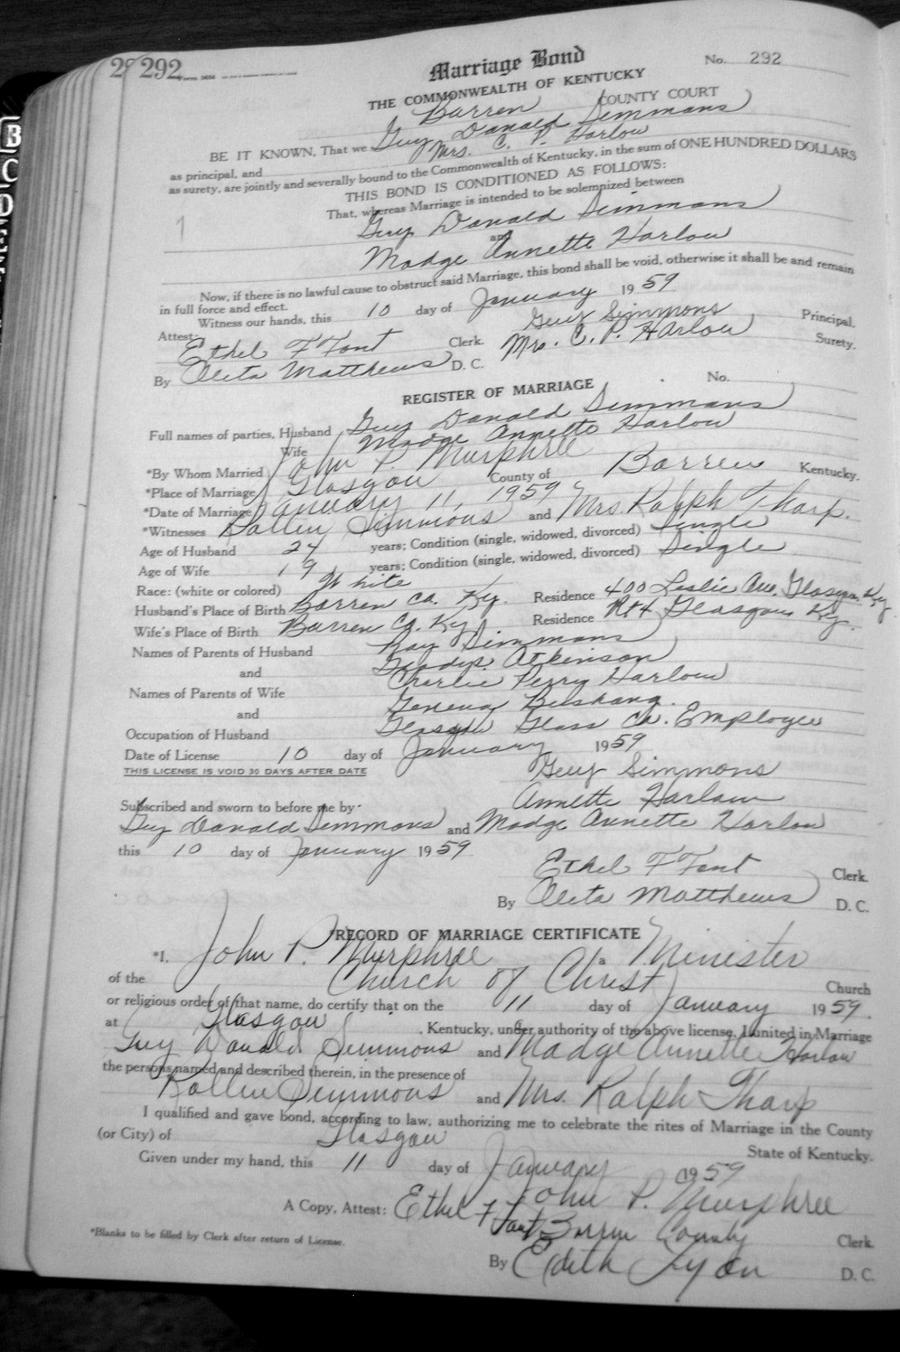 292
Marriage Bond No. 292
THE COMMONWEALTH OF KENTUCKY
Barren COUNTY COURT
BE IT KNOWN, That we Guy Donald Simmons
as principal, and Mrs. C. P. Harlow
as surety, are jointly and severally bound to the Commonwealth of Kentucky, in the sum of ONE HUNDRED DOLLARS
THIS BOND IS CONDITIONED AS FOLLOWS:
That, whereas Marriage is intended to be solemnized between
Guy Donald Simmons
and
Madge Annette Harlow
Now, if there is no lawful cause to obstruct said Marriage, this bond shall be void, otherwise it shall be and remain
in full force and effect.
Witness our hands, this 10 day of January 1959
Guy Simmons Principal.
Attest: Mrs. C. P. Harlow Surety.
Ethel F Font Clerk.
By Oleta Matthews D. C.
REGISTER OF MARRIAGE No.
Full names of parties, Husband Guy Donald Simmons
Wife Madge Annette Harlow
*By Whom Married John P. Murphree
*Place of Marriage Glasgow County of Barren Kentucky.
*Date of Marriage January 11, 1959
*Witnesses Rollin Simmons and Mrs. Ralph Tharp.
Age of Husband 24 years; Condition (single, widowed, divorced) Single
Age of Wife 19 years; Condition (single, widowed, divorced) Single
Race: (white or colored) White
Husband's Place of Birth Barren Co. Ky. Residence 400 Leslie Ave. Glasgow, Ky
Wife's Place of Birth Barren Co. Ky Residence Rt 4 Glasgow Ky.
Names of Parents of Husband Ray Simmons
and Gladys Atkinson
Names of Parents of Wife Charlie Perry Harlow
and Geneva
Occupation of Husband Glasgow Glass Co. Employee
Date of License 10 day of January 1959
THIS LICENSE IS VOID 30 DAYS AFTER DATE
Guy Simmons
Annette Harlow
Subscribed and sworn to before me by
Guy Donald Simmons and Madge Annette Harlow
this 10 day of January 1959
Ethel F Font Clerk.
By Oleta Matthews D. C.
*RECORD OF MARRIAGE CERTIFICATE
*I. John P. Murphree a Minister
of the Church of Christ Church
or religious order of that name, do certify that on the 11 day of January 1959.
at Glasgow, Kentucky, under authority of the above license, I united in Marriage
Guy Donald Simmons and Madge Annette Harlow
the persons named and described therein, in the presence of
Rollin Simmons and Mrs. Ralph Tharp
I qualified and gave bond, according to law, authorizing me to celebrate the rites of Marriage in the County
(or City) of Glasgow State of Kentucky.
Given under my hand, this 11 day of January 1959
John P. Murphree
A Copy, Attest: Ethel F Font Barren County Clerk
*Blanks to be filled by Clerk after return of License.
By Edith Lyon D. C.